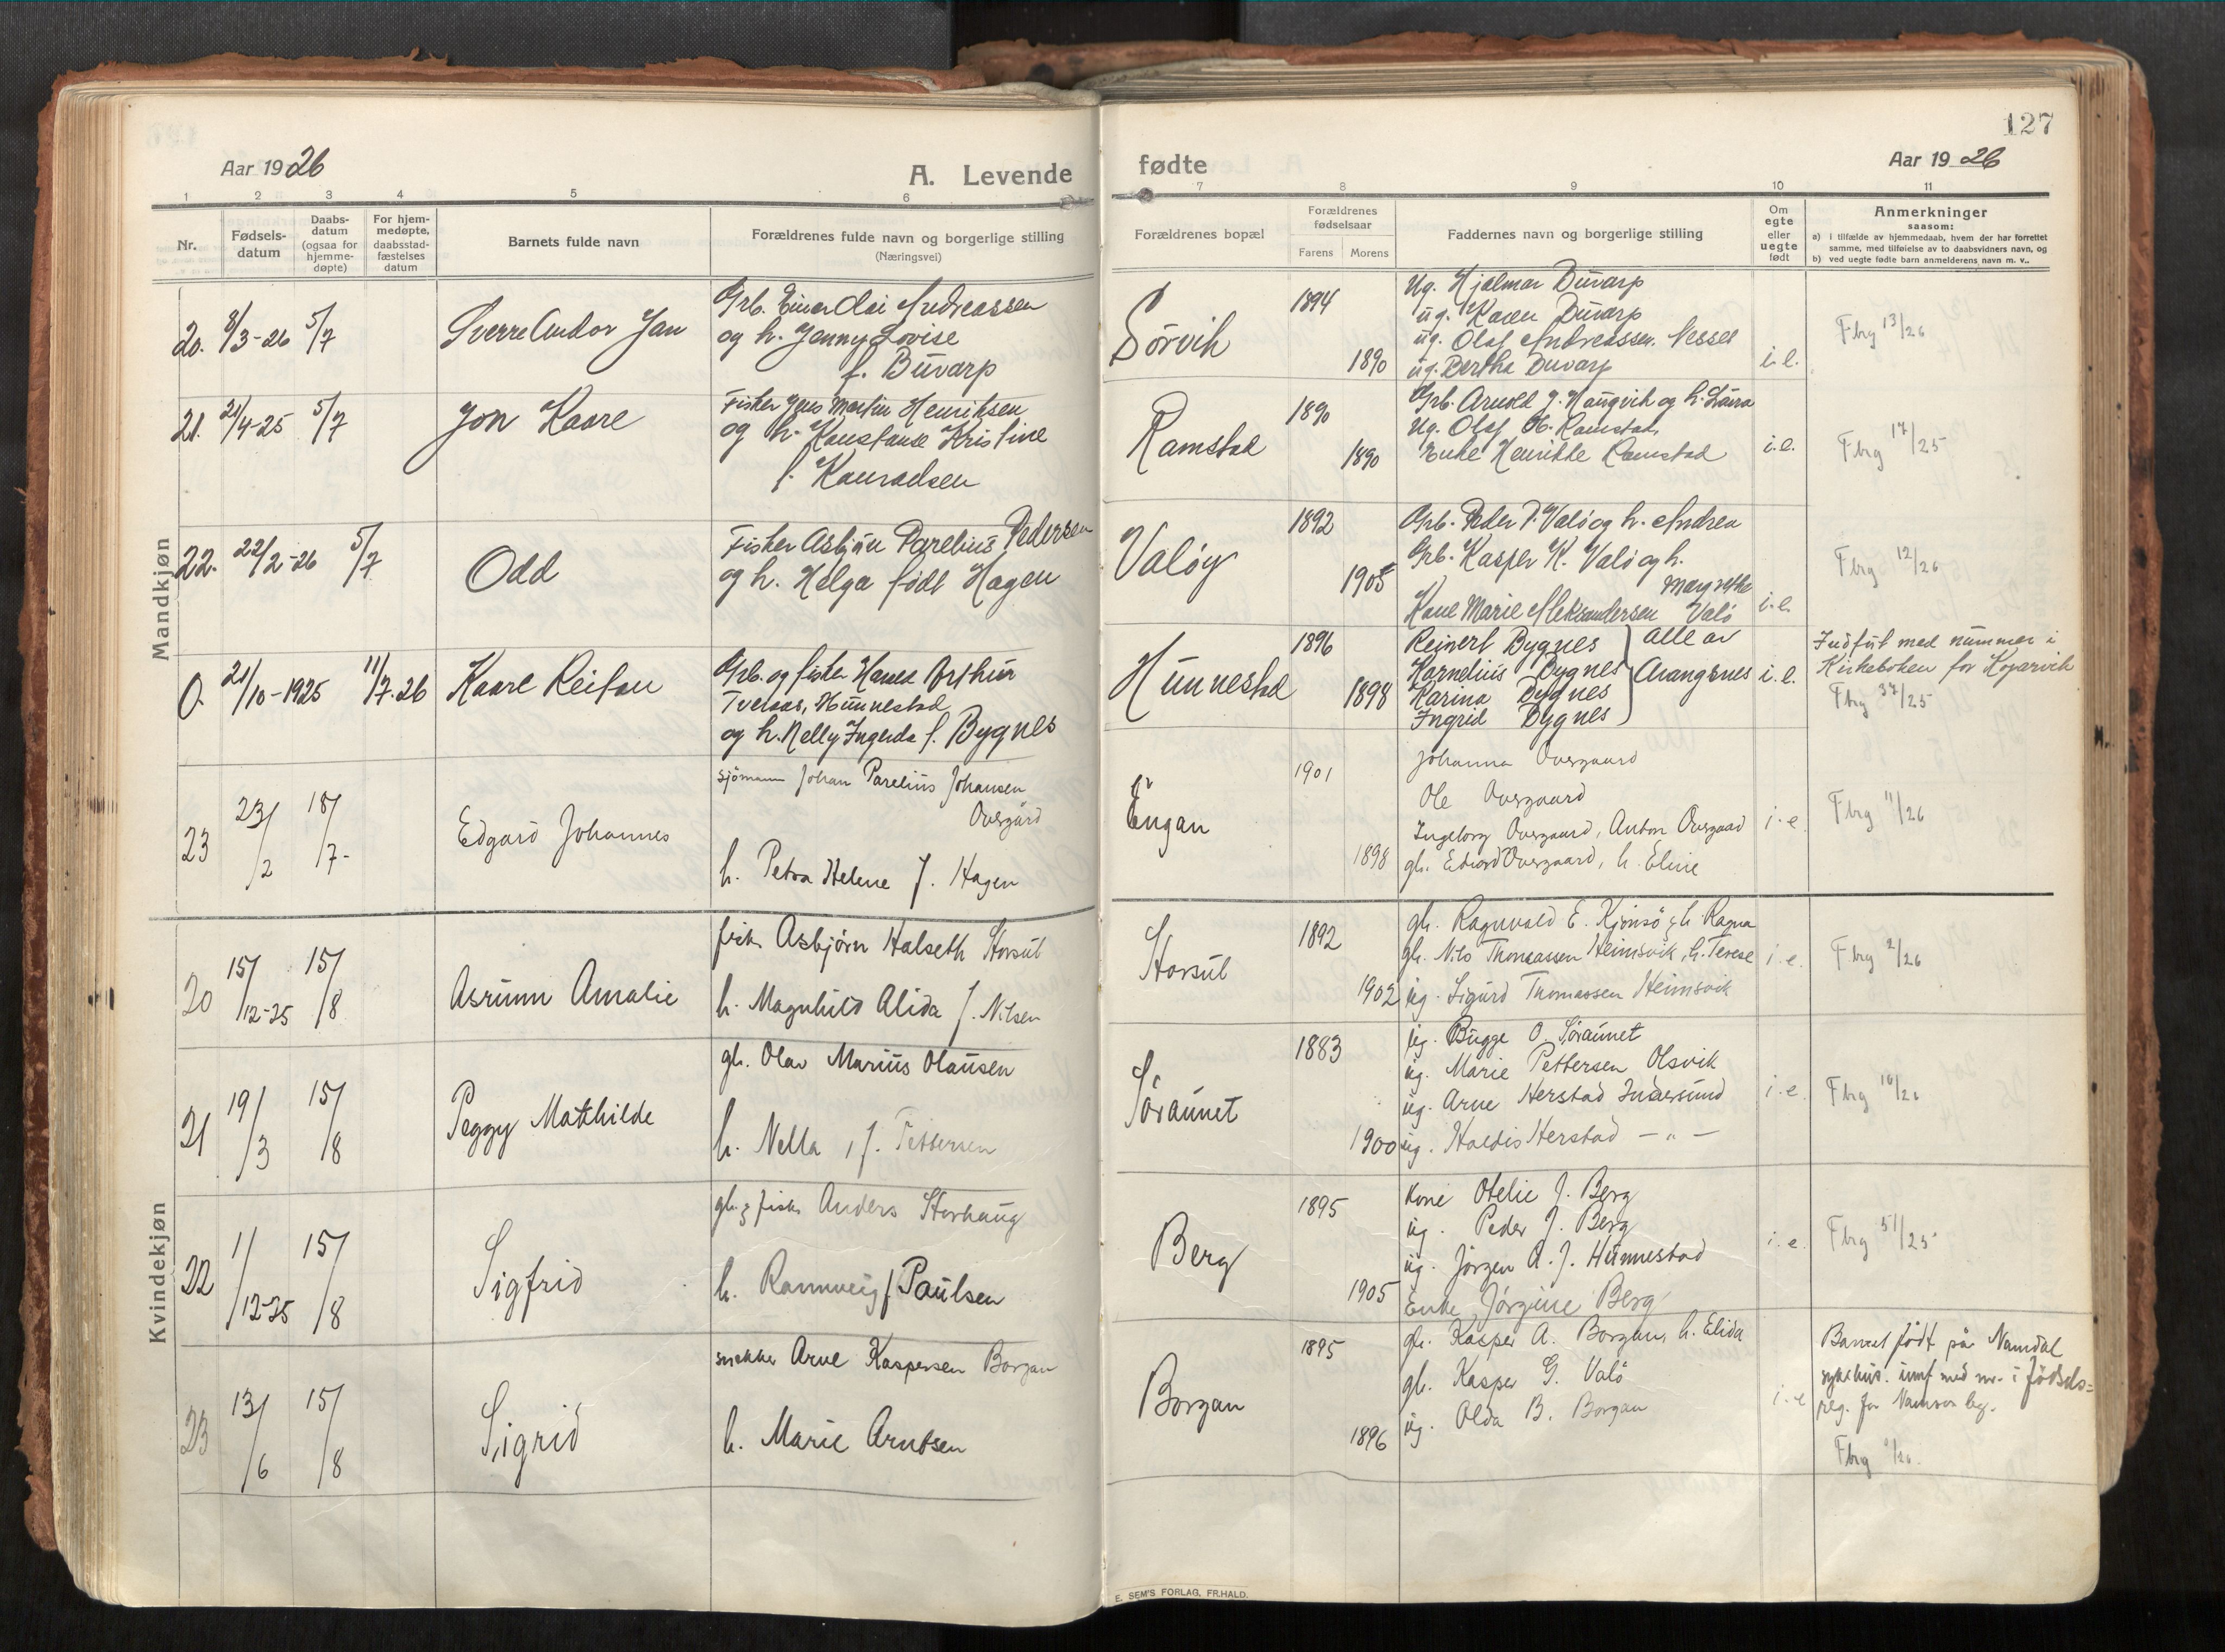 127
Aar 1926
A. Levende
fødte
Aar 1926
1 2 3 4 5 6 7 8 9 10 11
Nr.
Fødsels-
datum
Daabs-
datum
(ogsaa for
hjemme-
døpte)
For hjem-
medøpte,
daabsstad-
fæstelses
datum
Barnets fulde navn
Forældrenes fulde navn og borgerlige stilling
(Næringsvei)
Forældrenes bopæl
Forældrenes
fødselsaar
Farens Morens
Faddernes navn og borgerlige stilling
Om
egte
eller
uegte
født
Anmerkninger
saasom:
a) i tilfælde av hjemmedaab, hvem der har forrettet
samme, med tilføielse av to daabsvidners navn, og
b) ved uegte fødte barn anmelderens navn m. v..
Mandkjøn
20. 8/3-26 5/7
Sverre Andor Jan
Grb. Einar Olai Andreassen
og h. Jenny Lovise
f. Duvarp
Sörvik
1894
1890
Ug. Hjalmar Duvarp
ug. Karen Duvarp
ug. Olaf Andreassen. Nessel
ug. Bertha Duvarp
i.e.
Fbrg 13/26
21. 21/4-25 5/7
Jon Kaare
Fisker Jens Martin Henriksen
og h. Konstanse Kristine
f. Konradsen
Ramstad
1890
1890
Grb. Arnold J. Haugvik og h. Laura
Ug. Olaf H. Ramstad,
Enke Henrikke Ramstad
i.e.
Fbrg 17/25
22. 22/2-26 5/7
Odd
Fisker Asbjörn Parelius Pedersen
og h. Helga født Hagen
Valöy
1892
1905
Grb. Peder P. Valö og h. Andrea
Grb. Kasper K. Valö og h.
Margrethe
Kone Marie Aleksandersen Valö
i.e.
Fbrg 12/26
0. 21/10-1925 11/7.26
Kaare Reifau
Grb. og fisker Hans Arthur
Tveraas, Hunnestad
og h. Nelly Ingerda f. Bygnes
Hunnestad
1896
1898
Reinert Bygnes } alle av
Kornelius Bygnes
Karina Bygnes
Ingrid Bygnes
i.e.
Indført med nummer i
Kirkeboken for Kopervik
Fbrg 37/25
23 23/2 18/7-
Edgard Johannes
sjömann Johan Parelius Johansen
Overgård
h. Petra Helene f. Hagen
Engan
1901
1898
Johanna Overgaard
Ole Overgaard
Ingeborg Overgaard, Anton Overgaard
gb. Edvard Overgaard, h. Eline
i.e.
Fbrg 11/26
Kvindekjøn
20 15/12-25 15/8
Asrunn Amalie
fisk. Asbjørn Halseth Storsul
h. Magnhild Alida f. Nilsen
Storsul
1892
1902
gb. Ragnvald E. Kjönsö & h. Ragna
gb. Nils Thomassen Heimsvik, h. Terese
ug. Sigurd Thomassen Heimsvik
i.e.
Fbrg 2/26
21 19/3 15/8
Peggy Mathilde
gb. Olav Marius Olausen
h. Nella, f. Pettersen
Söraunet
1883
1900
ug. Bugge O. Söraunet
ug. Marie Pettersen Olsvik
ug. Arne Herstad Indersund
ug. Haldis Herstad — " —
i.e.
Fbrg 10/26
22 1/12-25 15/8
Sigfrid
gb. & fisk. Anders Storhaug
h. Rannveig f. Paulsen
Berg
1895
1905
kone Otelie J. Berg
ug. Peder J. Berg
ug. Jörgen A. J. Hunnestad
Enke Jörgine Berg
i.e.
Fbrg 51/25
23 13/6 15/8
Sigrid
snekker Arne Kaspersen Borgan
h. Marie Arntsen
Borgan
1895
1896
gb. Kasper A. Borgan, h. Elida
gb. Kasper G. Valö
ug. Olda B. Borgan
i.e
Barnet født på Namdal
sykehus. innf med nr. i fødsels=
reg. for Namsos bg.
Fbrg
E. SEM'S FORLAG, FR.HALD.